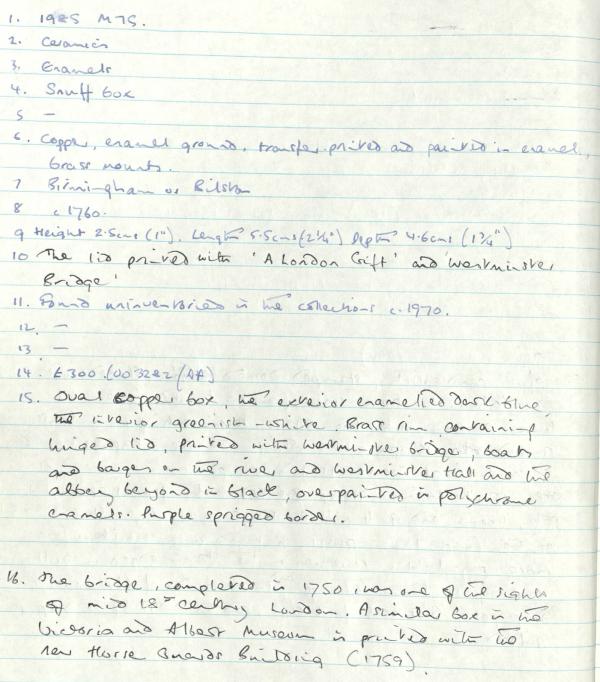 1. 1985 MTS.
2. Ceramics
3. Enamels
4. Snuff box
5 —
6. Copper, enamel ground, transfer-printed and painted in enamel,
brass mounts.
7 Birmingham or Bilston
8 c 1760.
9 Height 2.5cms (1"), Length 5.5cms (2¼") Depth 4.6cms (1¾")
10 The lid printed with 'A London Gift' and 'Westminster
Bridge'
11. Found uninventoried in the collections c. 1970.
12. —
13 —
14. £300.
15. Oval copper box, the exterior enamelled dark blue,
the interior greenish-white. Brass rim, containing
hinged lid, printed with Westminster bridge, boats
and barges on the river and Westminster Hall and the
abbey beyond in black, overpainted in polychrome
enamels. Purple sprigged border.
16. The bridge, completed in 1750, was one of the sights
of mid 18th century London. A similar box in the
Victoria and Albert Museum is printed with the
new Horse Guards Building (1759).